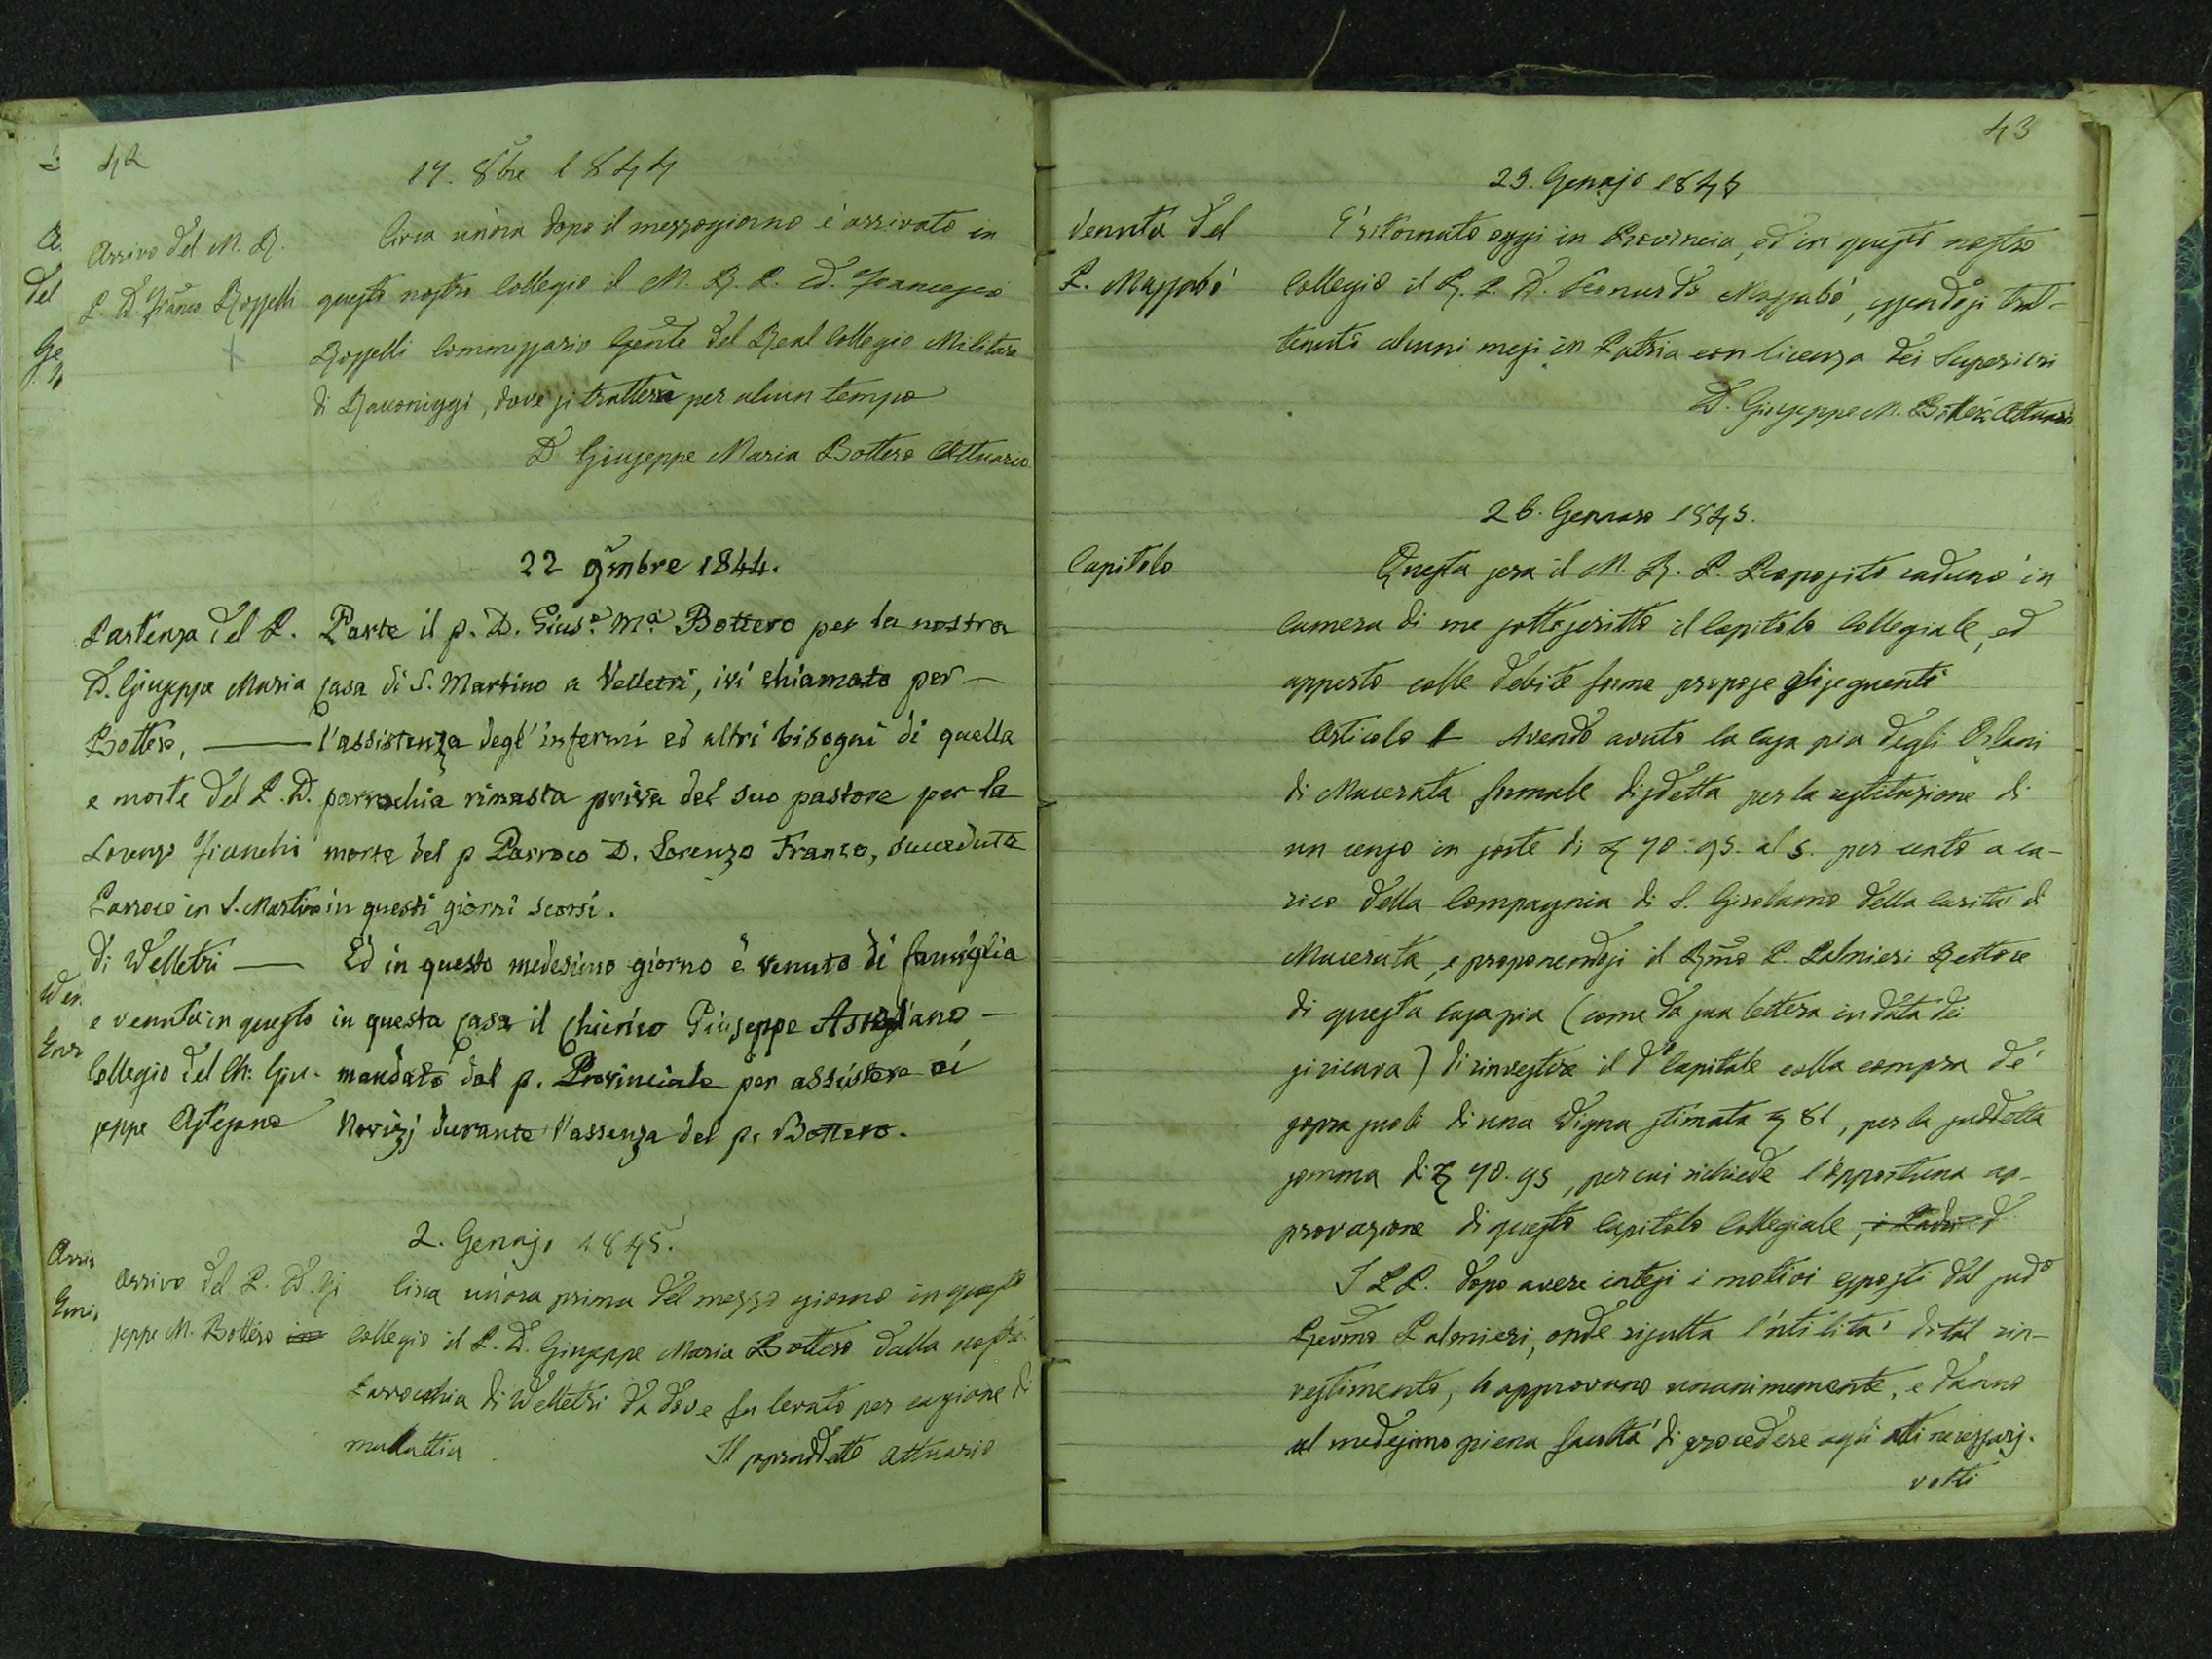 42
17. 8bre 1844
Arrivo del M. R.
P. D. Franco Rosselli
Circa un'ora dopo il mezzogiorno è arrivato in
questo nostro Collegio il M. R. P. D. Francesco
Rosselli Commissario Gente del Real Collegio Militare
di Racconiggi, dove si tratterrà per alcun tempo
D Giuseppe Maria Bottero Attuario
22 9mbre 1844.
Partenza del P.
D. Giuseppe Maria
Bottero,
e morte del P. D.
Lorenzo Franchi
Parroco in S. Martino
di Velletri
e venuta in questo
Collegio del Ch: Giu-
seppe Astegiano
Parte il p. D. Gius.e M.a Bottero per la nostra
Casa di S. Martino a Velletri, ivi chiamato per
l'assistenza degl'infermi ed altri bisogni di quella
parrochia rimasta priva del suo pastore per la
morte del p Parroco D. Lorenzo Franco, succeduta
in questi giorni scorsi.
Ed in questo medesimo giorno è venuto di famiglia
in questa Casa il Chierico Giuseppe
mandato dal p. Provinciale per assistere ai
Novizj durante l'assenza del p. Bottero.
2. Genajo 1845.
Arrivo del P. D. Gi
seppe M. Bottero
Circa un'ora prima del mezzo giorno in questo
Collegio il P. D. Giuseppe Maria Bottero dalla nostra
Parrocchia di Velletri da dove fu levato per cagione di
malattia
Il sopraddetto Attuario
43
23. Genajo 1845
Venuta del
P. Massabò
E' ritornato oggi in Provincia, ed in questo nostro
Collegio il R. P. D. Leonardo Massabò, essendosi trat-
tenuto alcuni mesi in Patria con licenza dei Superiori
D. Giuseppe M. Bottero Attuario
26. Gennaro 1845.
Capitolo
Questa sera il M. R. P. Preposito radunò in
camera di me sottoscritto il Capitolo Collegiale, ed
apperto colle debite forme propose gli seguenti
Articolo 1 Avendo avuto la Casa pia degli Orfani
di Macerata formale disdetta per la restituzione di
un censo in sorte di 70:95. al 5. per cento a ca-
rico della Compagnia di S. Girolamo della Carità di
Macerata, e proponendosi il Rmo P. Palmieri Rettore
di questa Casa pia (come da sua lettera in data dei
) di rinvestire il do Capitale colla compra de'
sopra suoli di una Vigna stimata 81, per la suddetta
somma di 70.95, per cui richiede l'opportuna ap-
provazione di questo Capitolo Collegiale, i Padri
I PP. dopo avere intesi i motivi esposti dal sudo
Revmo Palmieri, onde risulta l'utilità di tal rin-
vestimento, lo approvano unanimemente, e danno
al medesimo piena facoltà di procedere agli atti necessarj.
votti